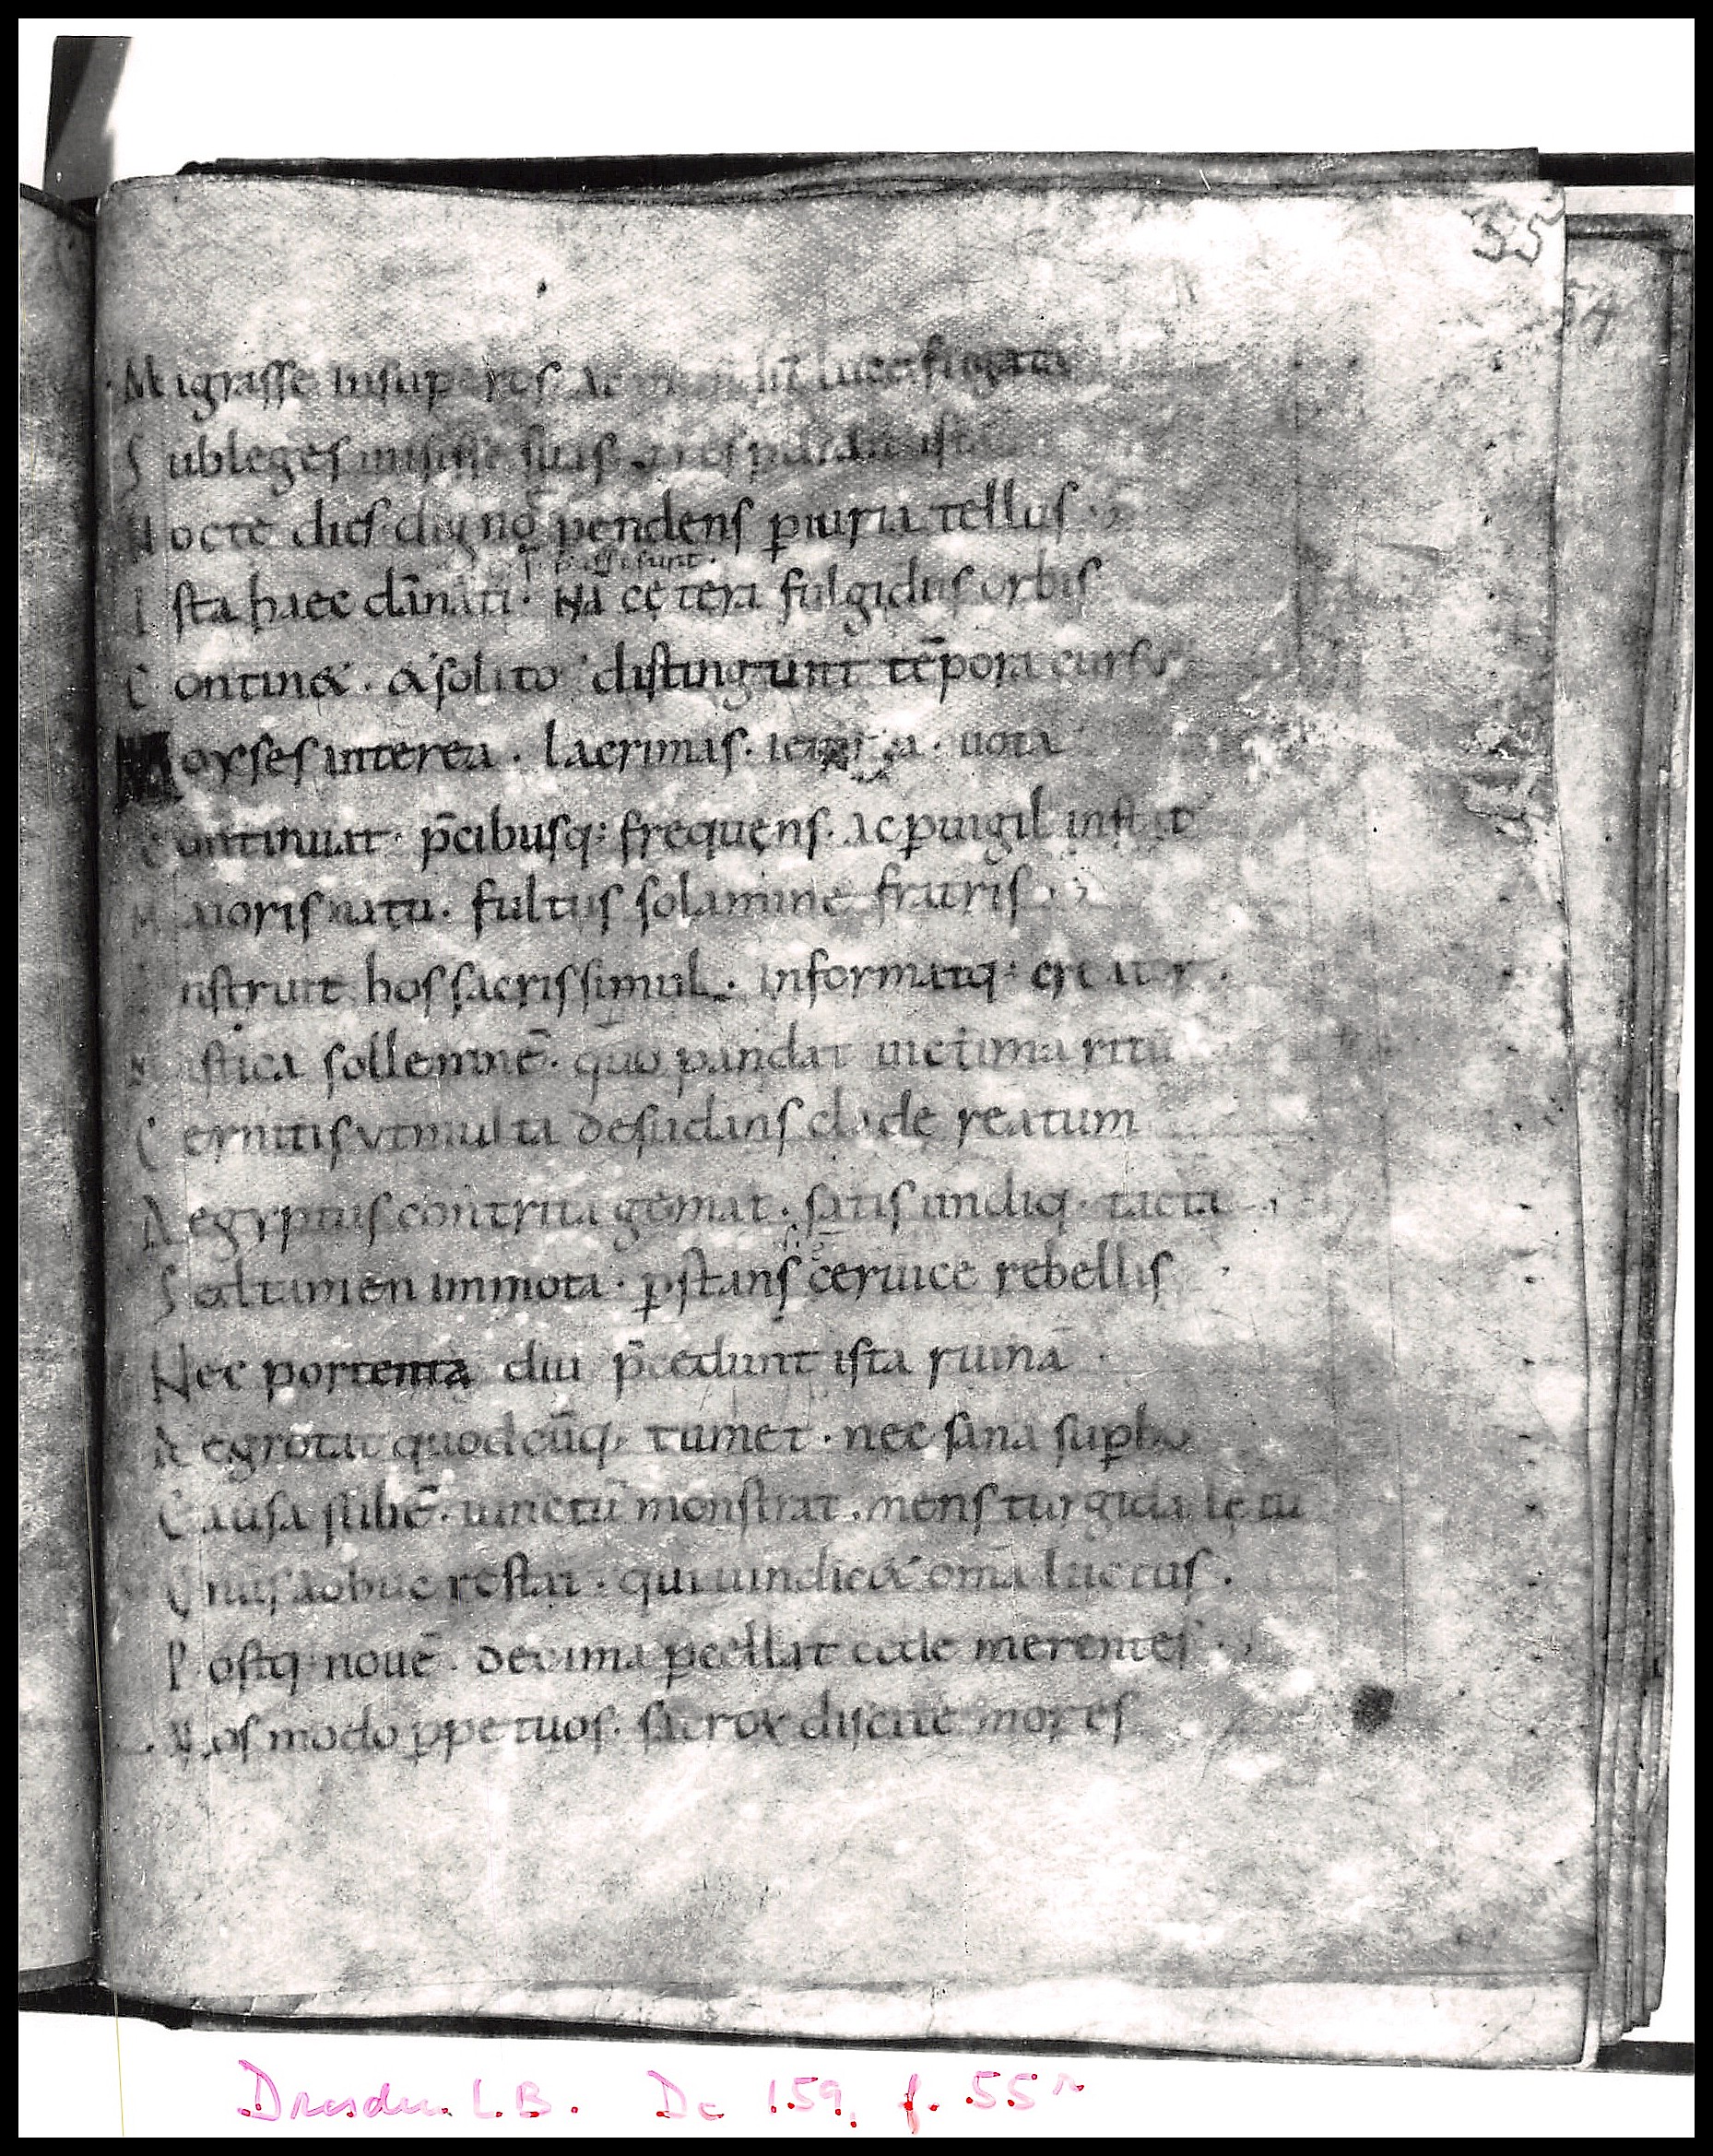 55
54
Migrasse insup eros ac luce fugata
Sub leges misisse suas
Nocte dies digno pendens p̱iuria tellus
passi sunt.
Ista haec dãnati. Nã cetera fulgidus orbis
Continet. et solito distingunt tēpora cursu
Moyses interea. lacrimas. uota
Continuat. p̄cibusq: frequens. ac p̱uigil instat
Maioris natu. fultus solamine fratris
Instruit hos sacris simul. informatq: creator.
Mistica sollemnē. quo pandat uictima ritu
Cernitis ut multa desudans clade reatum
Aegyptus contrita gemat. satis undiq. tacta
Set tamen immota. p̱stans ceruice rebellis
Nec portenta diu p̄cedunt ista ruinā
Aegrotat quodcūq. tumet. nec sana sup̱bo
Causa subē. uinctū monstrat. mens turgida lętū
Unus adhuc restat. qui uindicet om̄a luctus.
Postq: nouē. decima p̱cellat cede merentes
Vos modo p̱petuos. sacrox discite mores
Dresden L.B. Dc 159, f. 55r